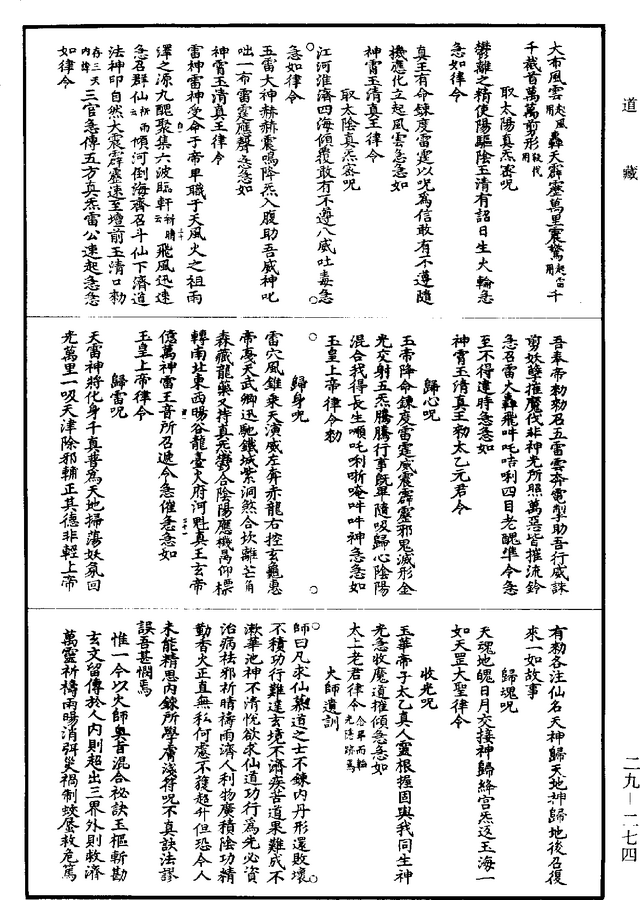 道藏
大布風雲起風用轟天霹靂萬里震驚起雷用千
千截首萬萬剪形
取太陽真炁密呪
鬱離之精使陽驅陰玉清有詔日生火輪急
急如律令
真王有命鍊度雷霆以呪為信敢有不遵隨
機應化立起風雲急急如
神霄玉清真王律令
取太陰真炁密呪
江河淮濟四海傾覆敢有不遵八威吐毒急
急如律令
五雷大神赫赫震鳴降炁入腹助吾威神叱
咄一布雷霆應聲急急如
神霄玉清真王律令
雷神雷神受命于帝早職于天風火之祖雨
澤之源九醜聚集六波臨軒祈晴云飛風迅速
急召群仙祈雨云傾河倒海齊召斗仙下濟道
法神印自然大震霹靂速至壇前玉清口勑
三官急傳五方真炁雷公速起急急
如律令
吾奉帝勑勑召五雷雲奔電掣助吾行威誅
剪妖孽摧魔伐非神光所照萬惡皆摧流鈴
急召雷火轟飛吽吒咭唎四目老醜準令急
至不得違時急急如
神霄玉清真王勑太乙元君令
歸心呪
玉帝降命鍊度雷霆威震霹靂邪鬼滅形金
光交射五炁騰騰行事既畢隨吸歸心陰陽
混合我得長生嚩吒唎哳唵吽吽神急急如
玉皇上帝律令勑
歸身呪
雷穴風錐乘天演威左奔赤龍右控玄龜惠
帝憂天武卿迅馳鐵城紫洞煞合坎離芒角
森藏龍藥又持真炁鬱合陰陽應機萬仰標
轉南址東西暘谷龍臺火府河魁真王玄帝
億萬神雷王音所召遞令急催急急如
玉皇上帝律令
歸雷呪
天雷神將化身千真普為天地掃蕩妖氛回
光萬里一吸天津除邪輔正其德非輕上帝
有勑各注仙名天神歸天地神歸地後召復
來一如故事
歸魂呪
天魂地魄日月交接神歸絳宮炁返玉海一
如天罡大聖律令
收光呪
玉華帝子太乙真人靈根握固與我同生神
光急收魔道摧傾急急如
太上老君律令
火師遺訓
師曰凡求仙慕道之士不鍊內丹形還敗壞
不積功行難達玄境不濟疾苦道果難成不
漱華池神不清悅欲求仙道功行為先必資
治病祛邪祈晴禱雨濟人利物廣積陰功精
勤香火正直無私何慮不獲超升但恐令人
未能精思內鍊所學膚淺符呪不真訣法謬
誤吾甚憫焉
惟一今以火師奧旨混合祕訣玉樞斬勘
玄文留傳於人內則超出三界外則救濟
萬靈祈禱雨暘消弭災禍制蛟蜃救危篤
二九—二七四